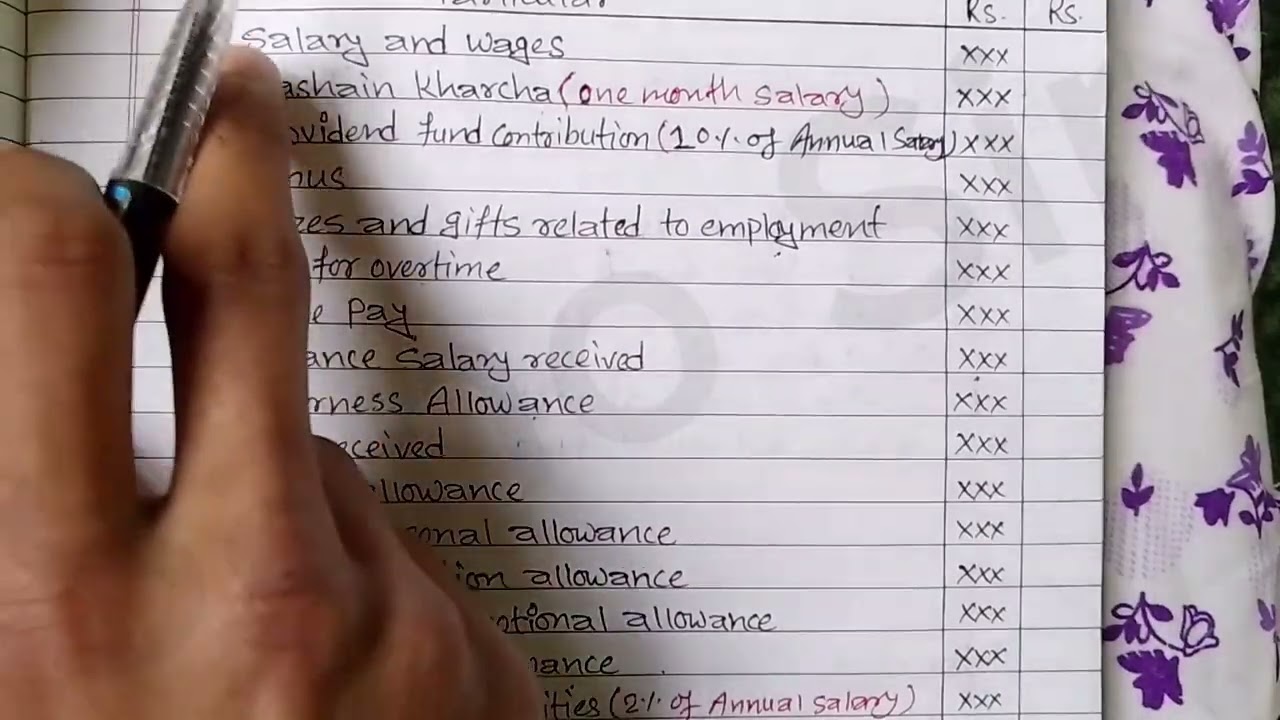 Rs. Rs.
Salary and wages xxx
ashain kharcha (one month salary) xxx
ovidend fund contribution (10% of Annual Salary) xxx
nus xxx
zes and gifts related to employment xxx
for overtime xxx
e Pay xxx
ance Salary received xxx
rness Allowance xxx
eceived xxx
llowance xxx
onal allowance xxx
ion allowance xxx
otional allowance xxx
nance xxx
ities (2% of Annual salary) xxx